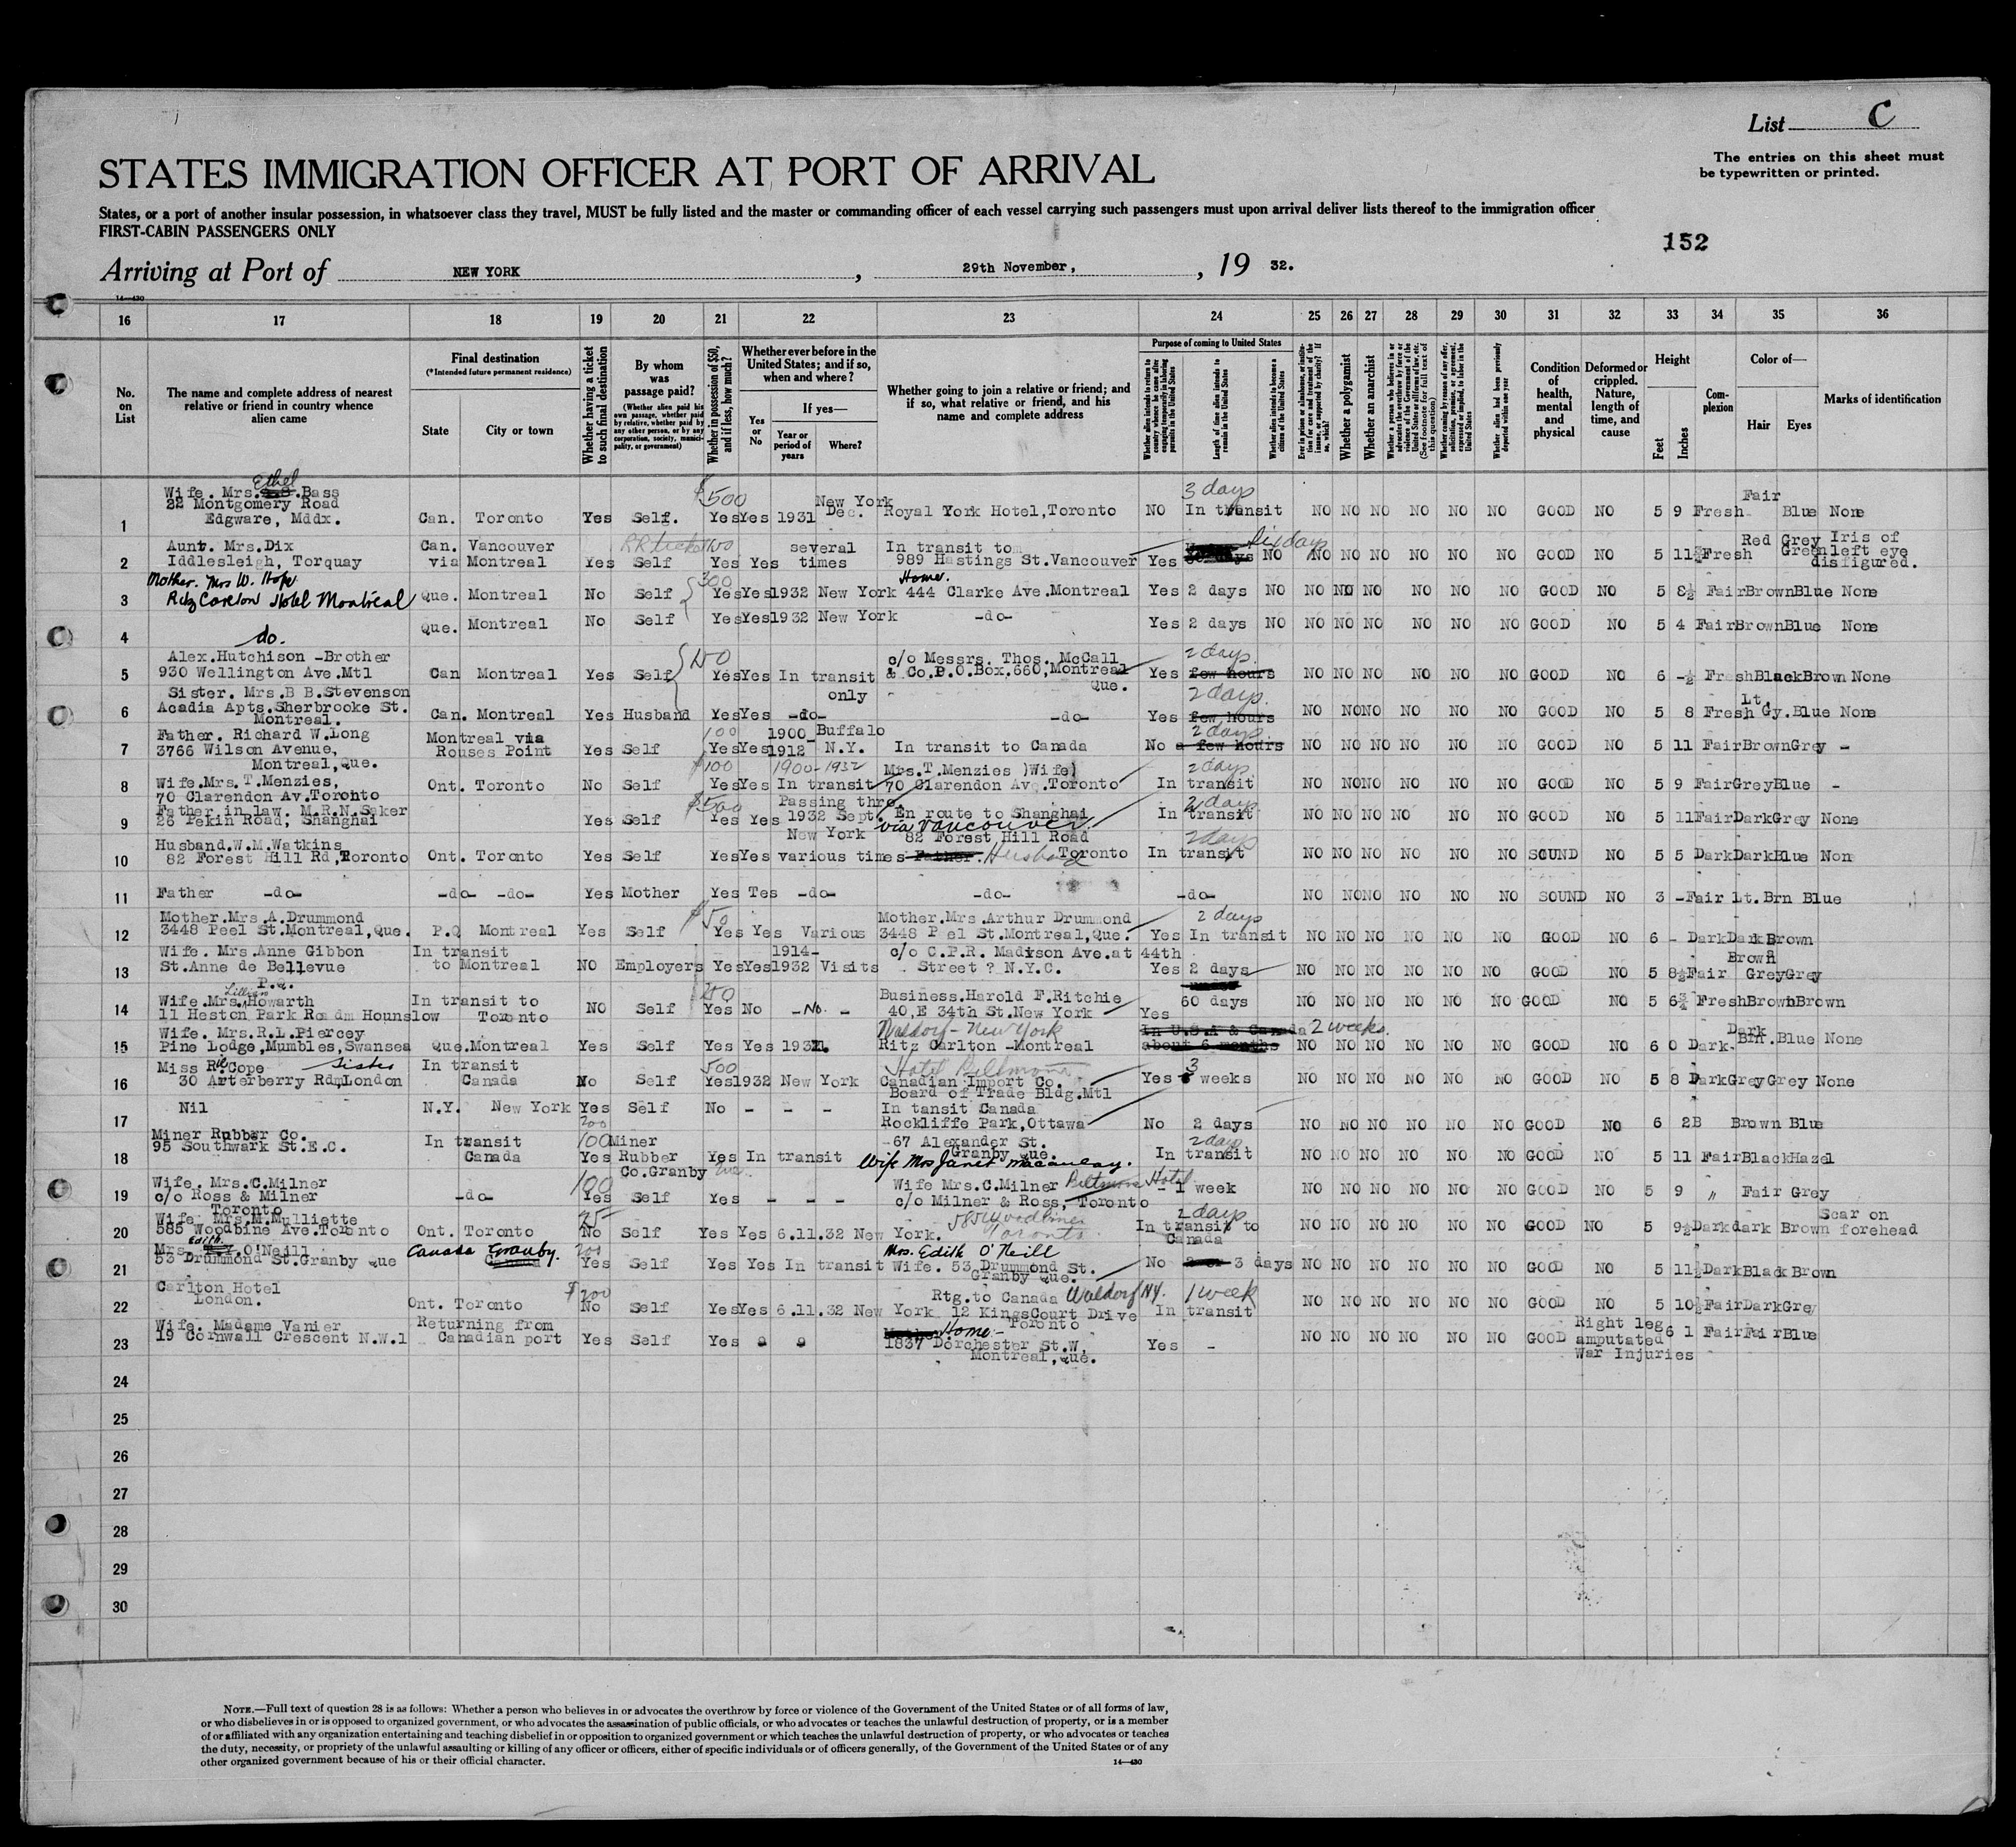 List C
The entries on this sheet must
be typewritten or printed.
STATES IMMIGRATION OFFICER AT PORT OF ARRIVAL
States, or a port of another insular possession, in whatsoever class they travel, MUST be fully listed and the master or commanding officer of each vessel carrying such passengers must upon arrival deliver lists thereof to the immigration officer
FIRST-CABIN PASSENGERS ONLY
152
Arriving at Port of NEW YORK, 29th November, 19 32.
14—430
16 17 18 19 20 21 22 23 24 25 26 27 28 29 30 31 32 33 34 35 36
No. on List
The name and complete address of nearest relative or friend in country whence alien came
Final destination
(*Intended future permanent residence)
State
City or town
Whether having a ticket to such final destination
By whom was passage paid?
(Whether alien paid his own passage, whether paid by relative, whether paid by any other person, or by any corporation, society, municipality, or government)
Whether in possession of $50, and if less, how much?
Whether ever before in the United States; and if so, when and where?
Yes or No
If yes—
Year or period of years
Where?
Whether going to join a relative or friend; and if so, what relative or friend, and his name and complete address
Purpose of coming to United States
Length of time alien intends to remain in the United States
Whether alien intends to become a citizen of the United States
Whether a polygamist
Whether an anarchist
Whether alien had been previously deported within one year
Condition of health, mental and physical
Deformed or crippled. Nature, length of time, and cause
Height
Feet
Inches
Complexion
Color of—
Hair
Eyes
Marks of identification
1 Wife. Mrs. Ethel Bass 22 Montgomery Road Edgware, Mddx. Can. Toronto Yes Self. $500 Yes Yes 1931 New York Dec. Royal York Hotel,Toronto NO 3 days In transit NO NO NO NO NO NO GOOD NO 5 9 Fresh Fair Blue None
2 Aunt. Mrs.Dix Iddlesleigh, Torquay Can. Vancouver via Montreal Yes Self Yes Yes several times In transit to 989 Hastings St.Vancouver Yes NO NO NO NO NO NO NO GOOD NO 5 11½ Fresh Red Grey Green Iris of left eye disfigured.
3 Mother. Mrs W. Hope Ritz Carlton Hotel Montreal Que. Montreal No Self 300 Yes Yes 1932 New York Home. 444 Clarke Ave.Montreal Yes 2 days NO NO NO NO NO NO NO GOOD NO 5 8½ Fair Brown Blue None
4 do. Que. Montreal No Self Yes Yes 1932 New York -do- Yes 2 days NO NO NO NO NO NO NO GOOD NO 5 4 Fair Brown Blue None
5 Alex.Hutchison -Brother 930 Wellington Ave.Mtl Can Montreal Yes Self 150 Yes Yes In transit only c/o Messrs. Thos. McCall & Co.P.O.Box.660,Montreal Que. Yes 2 days. few hours NO NO NO NO NO NO GOOD NO 6 -½ Fresh Black Brown None
6 Sister. Mrs.B B.Stevenson Acadia Apts.Sherbrooke St. Montreal. Can. Montreal Yes Husband Yes Yes -do- -do- Yes 2 days. few hours NO NO NO NO NO NO GOOD NO 5 8 Fresh Lt. Gy. Blue None
7 Father. Richard W.Long 3766 Wilson Avenue, Montreal,Que. Montreal via Rouses Point Yes Self 100 Yes Yes 1900- 1912 Buffalo N.Y. In transit to Canada No 2 days. a few hours NO NO NO NO NO NO GOOD NO 5 11 Fair Brown Grey -
8 Wife.Mrs.T.Menzies, 70 Clarendon Av.Toronto Ont. Toronto No Self $100 Yes Yes 1900-1932 In transit Mrs.T.Menzies (Wife) 70 Clarendon Av .Toronto 2 days In transit NO NO NO NO NO NO GOOD NO 5 9 Fair Grey Blue -
9 Father in law. M.R.N.Saker 26 Pekin Road, Shanghai Yes Self $500 Yes Yes Passing thro. 1932 Sept. New York En route to Shanghai via Vancouver. 2 days In transit NO NO NO NO NO NO GOOD NO 5 11 Fair Dark Grey None
10 Husband.W.M.Watkins 82 Forest Hill Rd,Toronto Ont. Toronto Yes Self Yes Yes various times 82 Forest Hill Road Father. Husband Toronto 2 days In transit NO NO NO NO NO NO SOUND NO 5 5 Dark Dark Blue Non
11 Father -do- -do- -do- Yes Mother Yes Tes -do- -do- -do- NO NO NO NO NO NO SOUND NO 3 - Fair Lt. Brn Blue
12 Mother.Mrs.A.Drummond 3448 Peel St.Montreal,Que. P.Q Montreal Yes Self $50 Yes Yes Various Mother.Mrs.Arthur Drummond 3448 P el St.Montreal,Que. Yes 2 days In transit NO NO NO NO NO NO GOOD NO 6 - Dark Dark Brown
13 Wife. Mrs.Anne Gibbon St.Anne de Bellevue P.Q. In transit to Montreal NO Employers Yes Yes 1914- 1932 Visits c/o C.P.R. Madison Ave.at 44th Street ? N.Y.C. Yes 2 days NO NO NO NO NO NO GOOD NO 5 8½ Fair Brown Grey Grey
14 Wife.Mrs. Lillian Howarth 11 Heston Park Road Hounslow In transit to Toronto NO Self 250 Yes No -No. - Business.Harold F.Ritchie 40,E 34th St.New York Yes 60 days NO NO NO NO NO NO GOOD NO 5 6¾ Fresh Brown Brown
15 Wife. Mrs.R.L.Piercey Pine Lodge,Mumbles,Swansea Que.Montreal Yes Self Yes Yes 1931. Waldorf - New York Ritz Carlton -Montreal In U.S.A & Canada about 6 months 2 weeks. NO NO NO NO NO NO GOOD NO 6 0 Dark. Dark Brn. Blue None
16 Miss Cope Sister 30 Arterberry Rd,London In transit Canada No Self 500 Yes 1932 New York Hotel Biltmore Canadian Import Co. Board of Trade Bldg.Mtl Yes 3 weeks NO NO NO NO NO NO GOOD NO 5 8 Dark Grey Grey None
17 Nil N.Y. New York Yes Self No - - - In tansit Canada Rockliffe Park,Ottawa No 2 days NO NO NO NO NO NO GOOD NO 6 2 B Brown Blue
18 Miner Rubber Co. 95 Southwark St.E.C. In transit Canada 200 100 Yes Miner Rubber Co.Granby Yes In transit -67 Alexander St. Granby Que. Wife Mrs Janet Macaulay. 2 days In transit NO NO NO NO NO NO GOOD NO 5 11 Fair Black Hazel
19 Wife. Mrs.C.Milner c/o Ross & Milner Toronto -do- 100 Yes Self Yes - - - Wife Mrs.C.Milner Biltmore Hotel c/o Milner & Ross, Toronto - 1 week NO NO NO NO NO NO GOOD NO 5 9 " Fair Grey
20 Wife Mrs.M.Mulliette 585 Woodbine Ave.Toronto Ont. Toronto 25 No Self Yes Yes 6.11.32 New York. 585 Woodbine Toronto 2 days In transit to Canada NO NO NO NO NO NO GOOD NO 5 9½ Dark dark Brown Scar on forehead
21 Mrs. Edith O'Neill 53 Drummond St.Granby Que Canada Granby. Canada 200 Yes Self Yes Yes In transit Mrs. Edith O'Neill Wife. 53 Drummond St. Granby Que. No 2 or 3 days NO NO NO NO NO NO GOOD NO 5 11½ Dark Black Brown
22 Carlton Hotel London. Ont. Toronto $200 No Self Yes Yes 6.11.32 New York Rtg.to Canada Waldorf NY. 12 KingsCourt Drive Toronto 1 week In transit NO NO NO NO NO NO GOOD NO 5 10½ Fair Dark Grey
23 Wife. Madame Vanier 19 Cornwall Crescent N.W.1 Returning from Canadian port Yes Self Yes Home.- 1837 Dorchester St.W, Montreal,Que. Yes - NO NO NO NO NO NO GOOD Right leg amputated War Injuries 6 1 Fair Fair Blue
24
25
26
27
28
29
30
NOTE.—Full text of question 28 is as follows: Whether a person who believes in or advocates the overthrow by force or violence of the Government of the United States or of all forms of law,
or who disbelieves in or is opposed to organized government, or who advocates the assassination of public officials, or who advocates or teaches the unlawful destruction of property, or is a member
of or affiliated with any organization entertaining and teaching disbelief in or opposition to organized government or which teaches the unlawful destruction of property, or who advocates or teaches
the duty, necessity, or propriety of the unlawful assaulting or killing of any officer or officers, either of specific individuals or of officers generally, of the Government of the United States or of any
other organized government because of his or their official character.
14—430